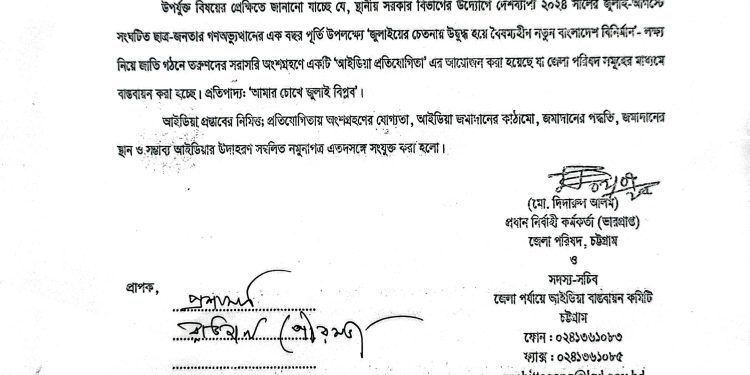 উপর্যুক্ত বিষয়ের প্রেক্ষিতে জানানো যাচ্ছে যে, স্থানীয় সরকার বিভাগের উদ্যোগে দেশব্যাপী ২০২৪ সালের জুলাই-আগস্টে
সংঘটিত ছাত্র-জনতার গণঅভ্যুত্থানের এক বছর পূর্তি উপলক্ষ্যে 'জুলাইয়ের চেতনায় উদ্বুদ্ধ হয়ে বৈষম্যহীন নতুন বাংলাদেশ বিনির্মান'- লক্ষ্য
নিয়ে জাতি গঠনে তরুণদের সরাসরি অংশগ্রহণে একটি 'আইডিয়া প্রতিযোগিতা' এর আয়োজন করা হয়েছে যা জেলা পরিষদ সমূহের মাধ্যমে
বাস্তবায়ন করা হচ্ছে। প্রতিপাদ্য: 'আমার চোখে জুলাই বিপ্লব'।
আইডিয়া প্রস্তাবের নিমিত্ত; প্রতিযোগিতায় অংশগ্রহণের যোগ্যতা, আইডিয়া জমাদানের কাঠামো, জমাদানের পদ্ধতি, জমাদানের
স্থান ও সম্ভাব্য আইডিয়ার উদাহরণ সম্বলিত নমুনাপত্র এতদসঙ্গে সংযুক্ত করা হলো।
(মো. দিদারুল আলম)
প্রধান নির্বাহী কর্মকর্তা (ভারপ্রাপ্ত)
জেলা পরিষদ, চট্টগ্রাম
ও
সদস্য-সচিব
জেলা পর্যায়ে আইডিয়া বাস্তবায়ন কমিটি
চট্টগ্রাম
ফোন : ০২৪১৩৬১০৮৩
ফ্যাক্স : ০২৪১৩৬১০৮৫
প্রাপক,
প্রশাসক